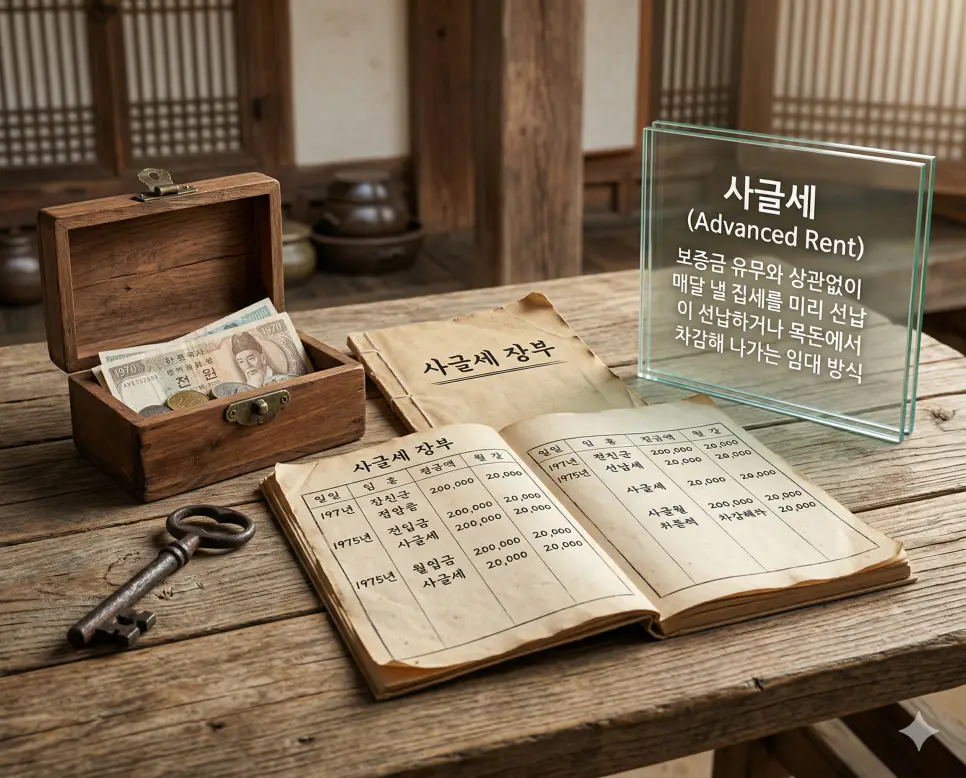 1970
1970
전 원
사글세 장부
사글세
(Advanced Rent)
보증금 유무와 상관없이
매달 낼 집세를 미리 선납
이 선납하거나 목돈에서
차감해 나가는 임대 방식
사글세 장부
일일 임 홍 정금액 월 간
197년 잔친군 200,000 20,000
점앙증
1975년 전입금 200,000 20,000
사글세 200,000 20,000
1975년 월입금 200,000 20,000
사글세 20,000 20,000
일일 임 홍 정금액 월 간
197년 잔친군 200,000 20,000
1975년 선납세 20,000 20,000
사글세 20,000
사글월 200,000 20,000
차감해라 20,000